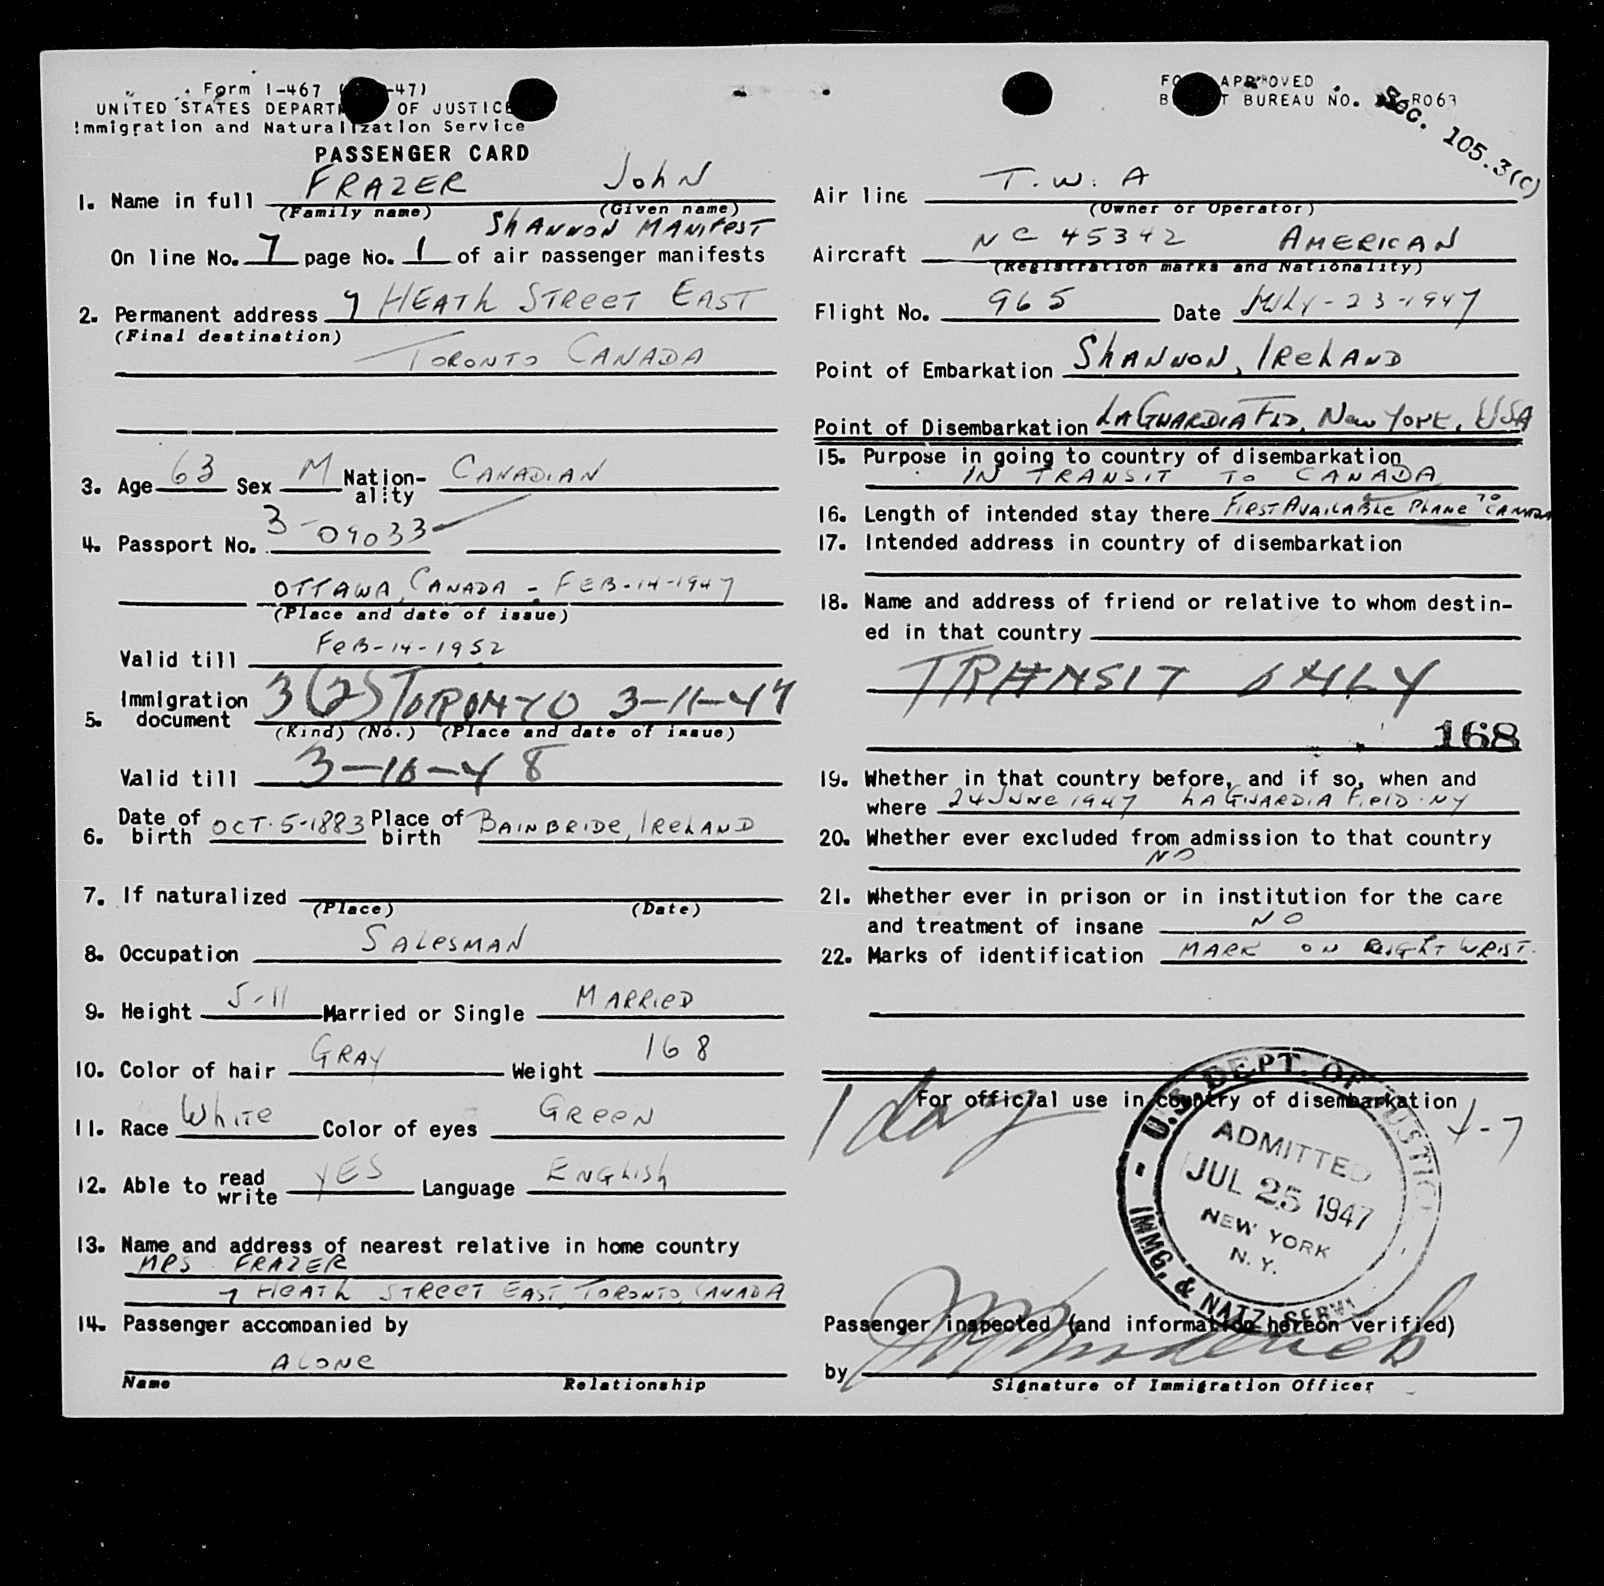 Form I-467 ( -47)
UNITED STATES DEPART OF JUSTICE
Immigration and Naturalization Service
PASSENGER CARD
1. Name in full FRAZER JohN
(Family name) (Given name)
ShANNON MANIfEST
On line No. 7 page No. 1 of air passenger manifests
2. Permanent address 7 HEATh STREET EAST
(Final destination)
TORONTO CANADA
3. Age 63 Sex M Nation-ality CANADIAN
4. Passport No. 3-09033
OTTAWA, CANADA - FEB-14-1947
(Place and date of issue)
Valid till FEB-14-1952
5. Immigration document 3 (2) TORONTO 3-11-47
(Kind) (No.) (Place and date of issue)
Valid till 3-10-48
6. Date of birth OCT. 5-1883 Place of birth BAINBRIDE, IRELAND
7. If naturalized
(Place) (Date)
8. Occupation SALESMAN
9. Height 5-11 Married or Single MARRIED
10. Color of hair GRAY Weight 168
11. Race WhITE Color of eyes GREEN
12. Able to read write YES Language ENGLISh
13. Name and address of nearest relative in home country
MRS FRAZER
7 HEATh STREET EAST, TORONTO, CANADA
14. Passenger accompanied by
ALONE
Name Relationship
FO APPROVED
B T BUREAU NO. R063
Sec. 105.3(c)
Air line T. W. A
(Owner or Operator)
Aircraft NC 45342 AMERICAN
(Registration marks and Nationality)
Flight No. 965 Date JULY-23-1947
Point of Embarkation ShANNON, IRELAND
Point of Disembarkation LAGUARDIA FLD, NEW YORK, USA
15. Purpose in going to country of disembarkation
IN TRANSIT TO CANADA
16. Length of intended stay there FIRST AVAILABLE PLANE TO CANADA
17. Intended address in country of disembarkation
18. Name and address of friend or relative to whom destin-
ed in that country
TRANSIT ONLY
168
19. Whether in that country before, and if so, when and
where 24 JUNE 1947 LAGUARDIA FIELD. NY
20. Whether ever excluded from admission to that country
NO
21. Whether ever in prison or in institution for the care
and treatment of insane NO
22. Marks of identification MARK ON RIGhT WRIST.
For official use in country of disembarkation
1 day
U.S. DEPT. OF JUSTICE
ADMITTED
JUL 25 1947
NEW YORK
N. Y.
IMMG. & NATZ. SERV.
Passenger inspected (and information hereon verified)
by
Signature of Immigration Officer